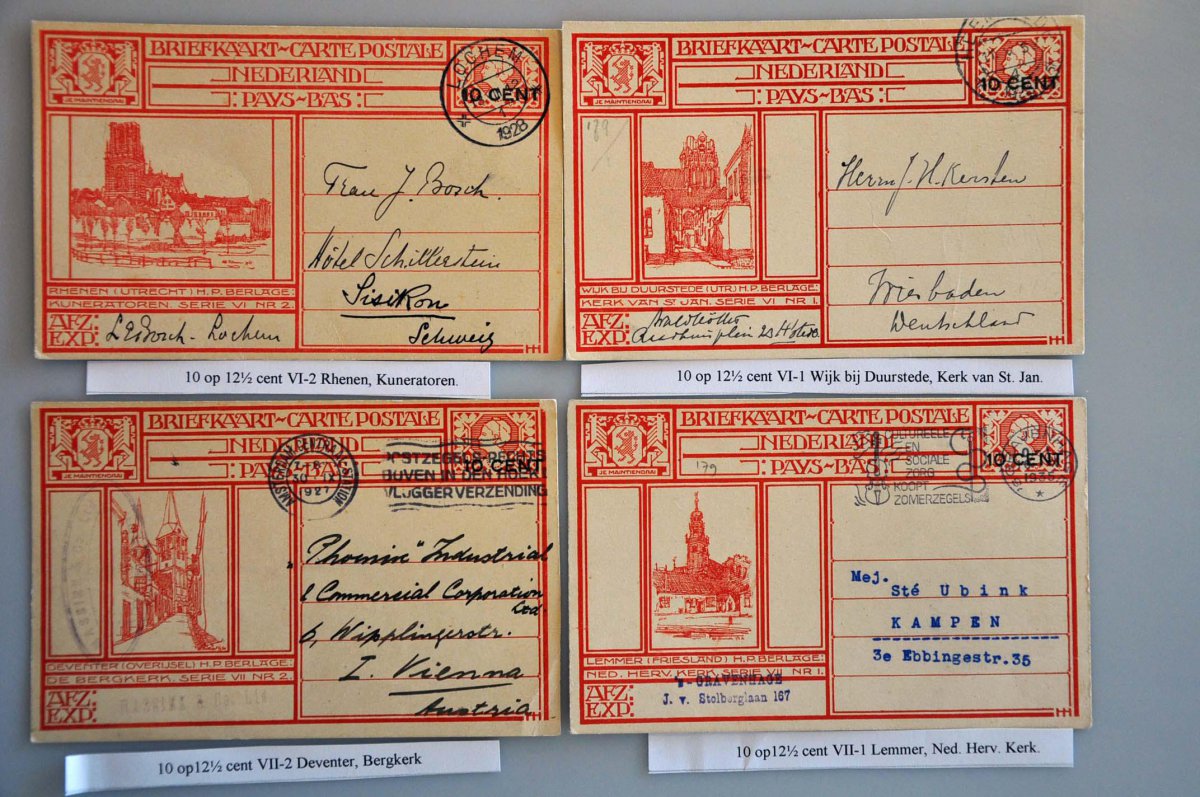 BRIEFKAART~CARTE POSTALE
NEDERLAND
PAYS-BAS
JE MAINTIENDRAI
10 CENT
LOCHEM
1928
Frau J. Bosch.
Hôtel Schillerstein
Sisikon
Schweiz
RHENEN (UTRECHT) H.P. BERLAGE:
KUNERATOREN. SERIE VI NR 2.
AFZ:
EXP:
Lochem
10 op 12½ cent VI-2 Rhenen, Kuneratoren.
BRIEFKAART~CARTE POSTALE
NEDERLAND
PAYS-BAS
JE MAINTIENDRAI
10 CENT
Herrn J. H. Kersten
Wiesbaden
Deutschland
WIJK BIJ DUURSTEDE (UTR) H.P. BERLAGE:
KERK VAN ST JAN. SERIE VI NR 1.
AFZ:
EXP:
10 op 12½ cent VI-1 Wijk bij Duurstede, Kerk van St. Jan.
BRIEFKAART~CARTE POSTALE
NEDERLAND
PAYS-BAS
JE MAINTIENDRAI
10 CENT
AMSTERDAM CENTRAAL-STATION
1927
POSTZEGELS RECHTS
BOVEN IN DEN HOEK
VLUGGER VERZENDING
"Phoenix" Industrial
& Commercial Corporation
Ltd
6, Wipplingerstr.
I. Vienna
Austria
DEVENTER (OVERIJSEL) H.P. BERLAGE:
DE BERGKERK. SERIE VII NR 2.
AFZ:
EXP:
10 op12½ cent VII-2 Deventer, Bergkerk
BRIEFKAART~CARTE POSTALE
NEDERLAND
PAYS-BAS
JE MAINTIENDRAI
10 CENT
179
CULTUREELE
EN
SOCIALE
ZORG
KOOPT
ZOMERZEGELS
Mej.
Sté Ubink
KAMPEN
3e Ebbingestr.35
LEMMER (FRIESLAND) H.P. BERLAGE:
NED. HERV. KERK. SERIE VII NR 1.
AFZ:
EXP:
's-GRAVENHAGE
J. v. Stolberglaan 167
10 op12½ cent VII-1 Lemmer, Ned. Herv. Kerk.